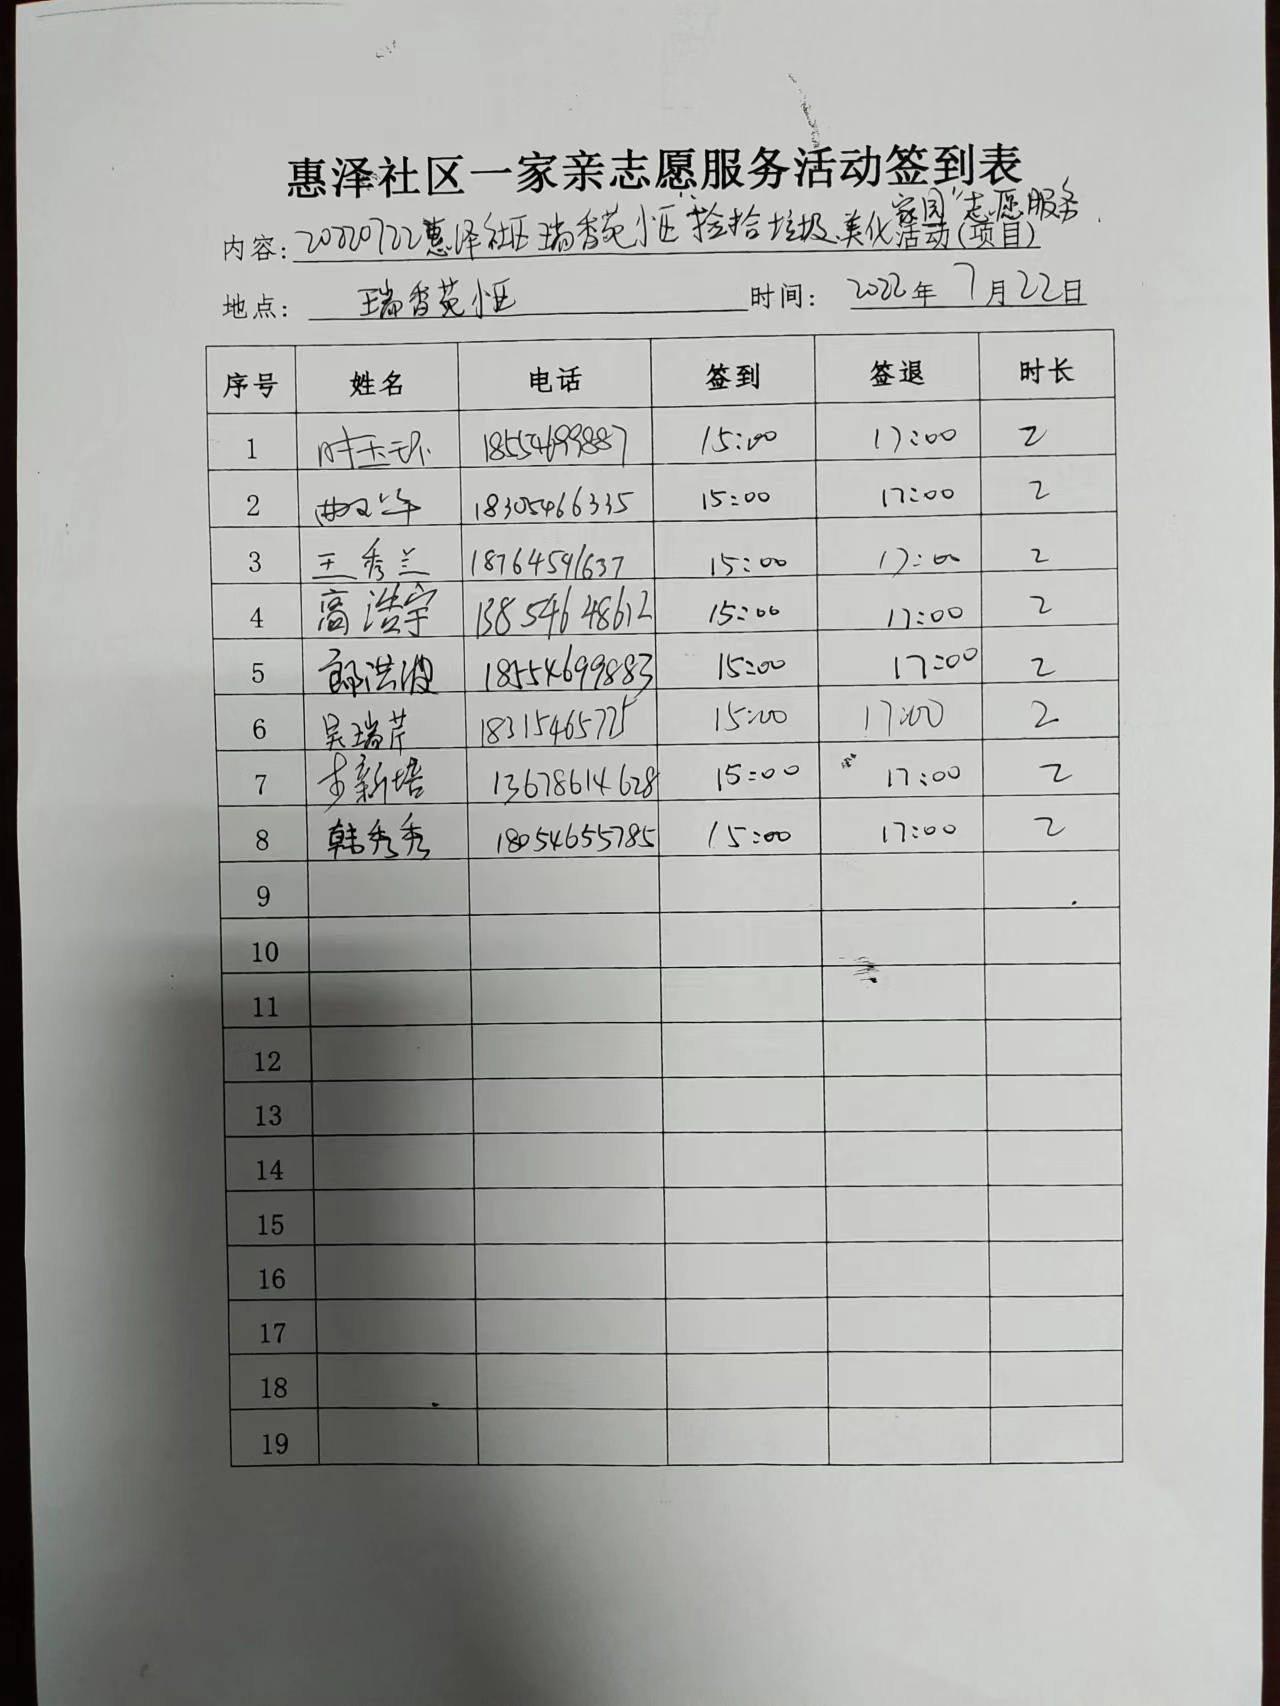 惠泽社区一家亲志愿服务活动签到表
内容：20220722惠泽社区瑞香苑小区“捡拾垃圾美化家园”志愿服务活动(项目)
地点： 瑞香苑小区 时间： 2022年7月22日
序号 姓名 电话 签到 签退 时长
1 时玉环 18554699887 15:00 17:00 2
2 18305466335 15:00 17:00 2
3 王秀兰 18764591637 15:00 17:00 2
4 高浩宇 13854648612 15:00 17:00 2
5 郭洪波 18554699883 15:00 17:00 2
6 吴瑞芹 18315465775 15:00 17:00 2
7 步新培 13678614628 15:00 17:00 2
8 韩秀秀 18054655785 15:00 17:00 2
9
10
11
12
13
14
15
16
17
18
19